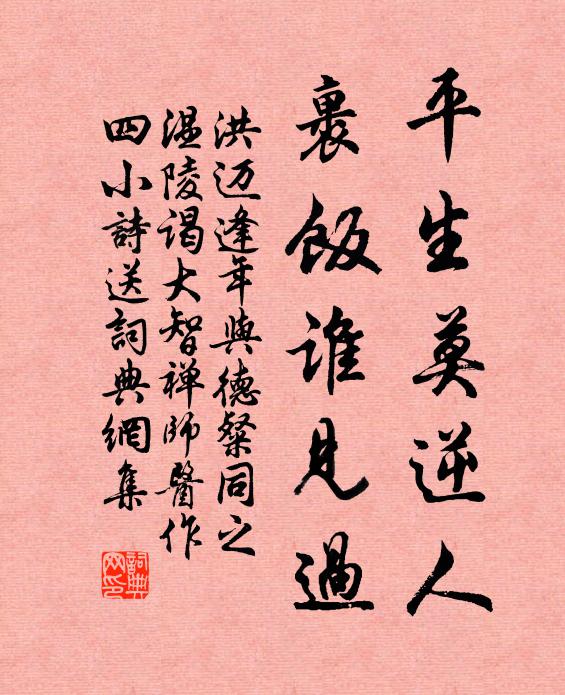 平生莫逆人
裹飯誰見過
洪迈逢年與德粲同之
温陵谒大智禅师醫作
四小詩送詞典網集
詞典网印